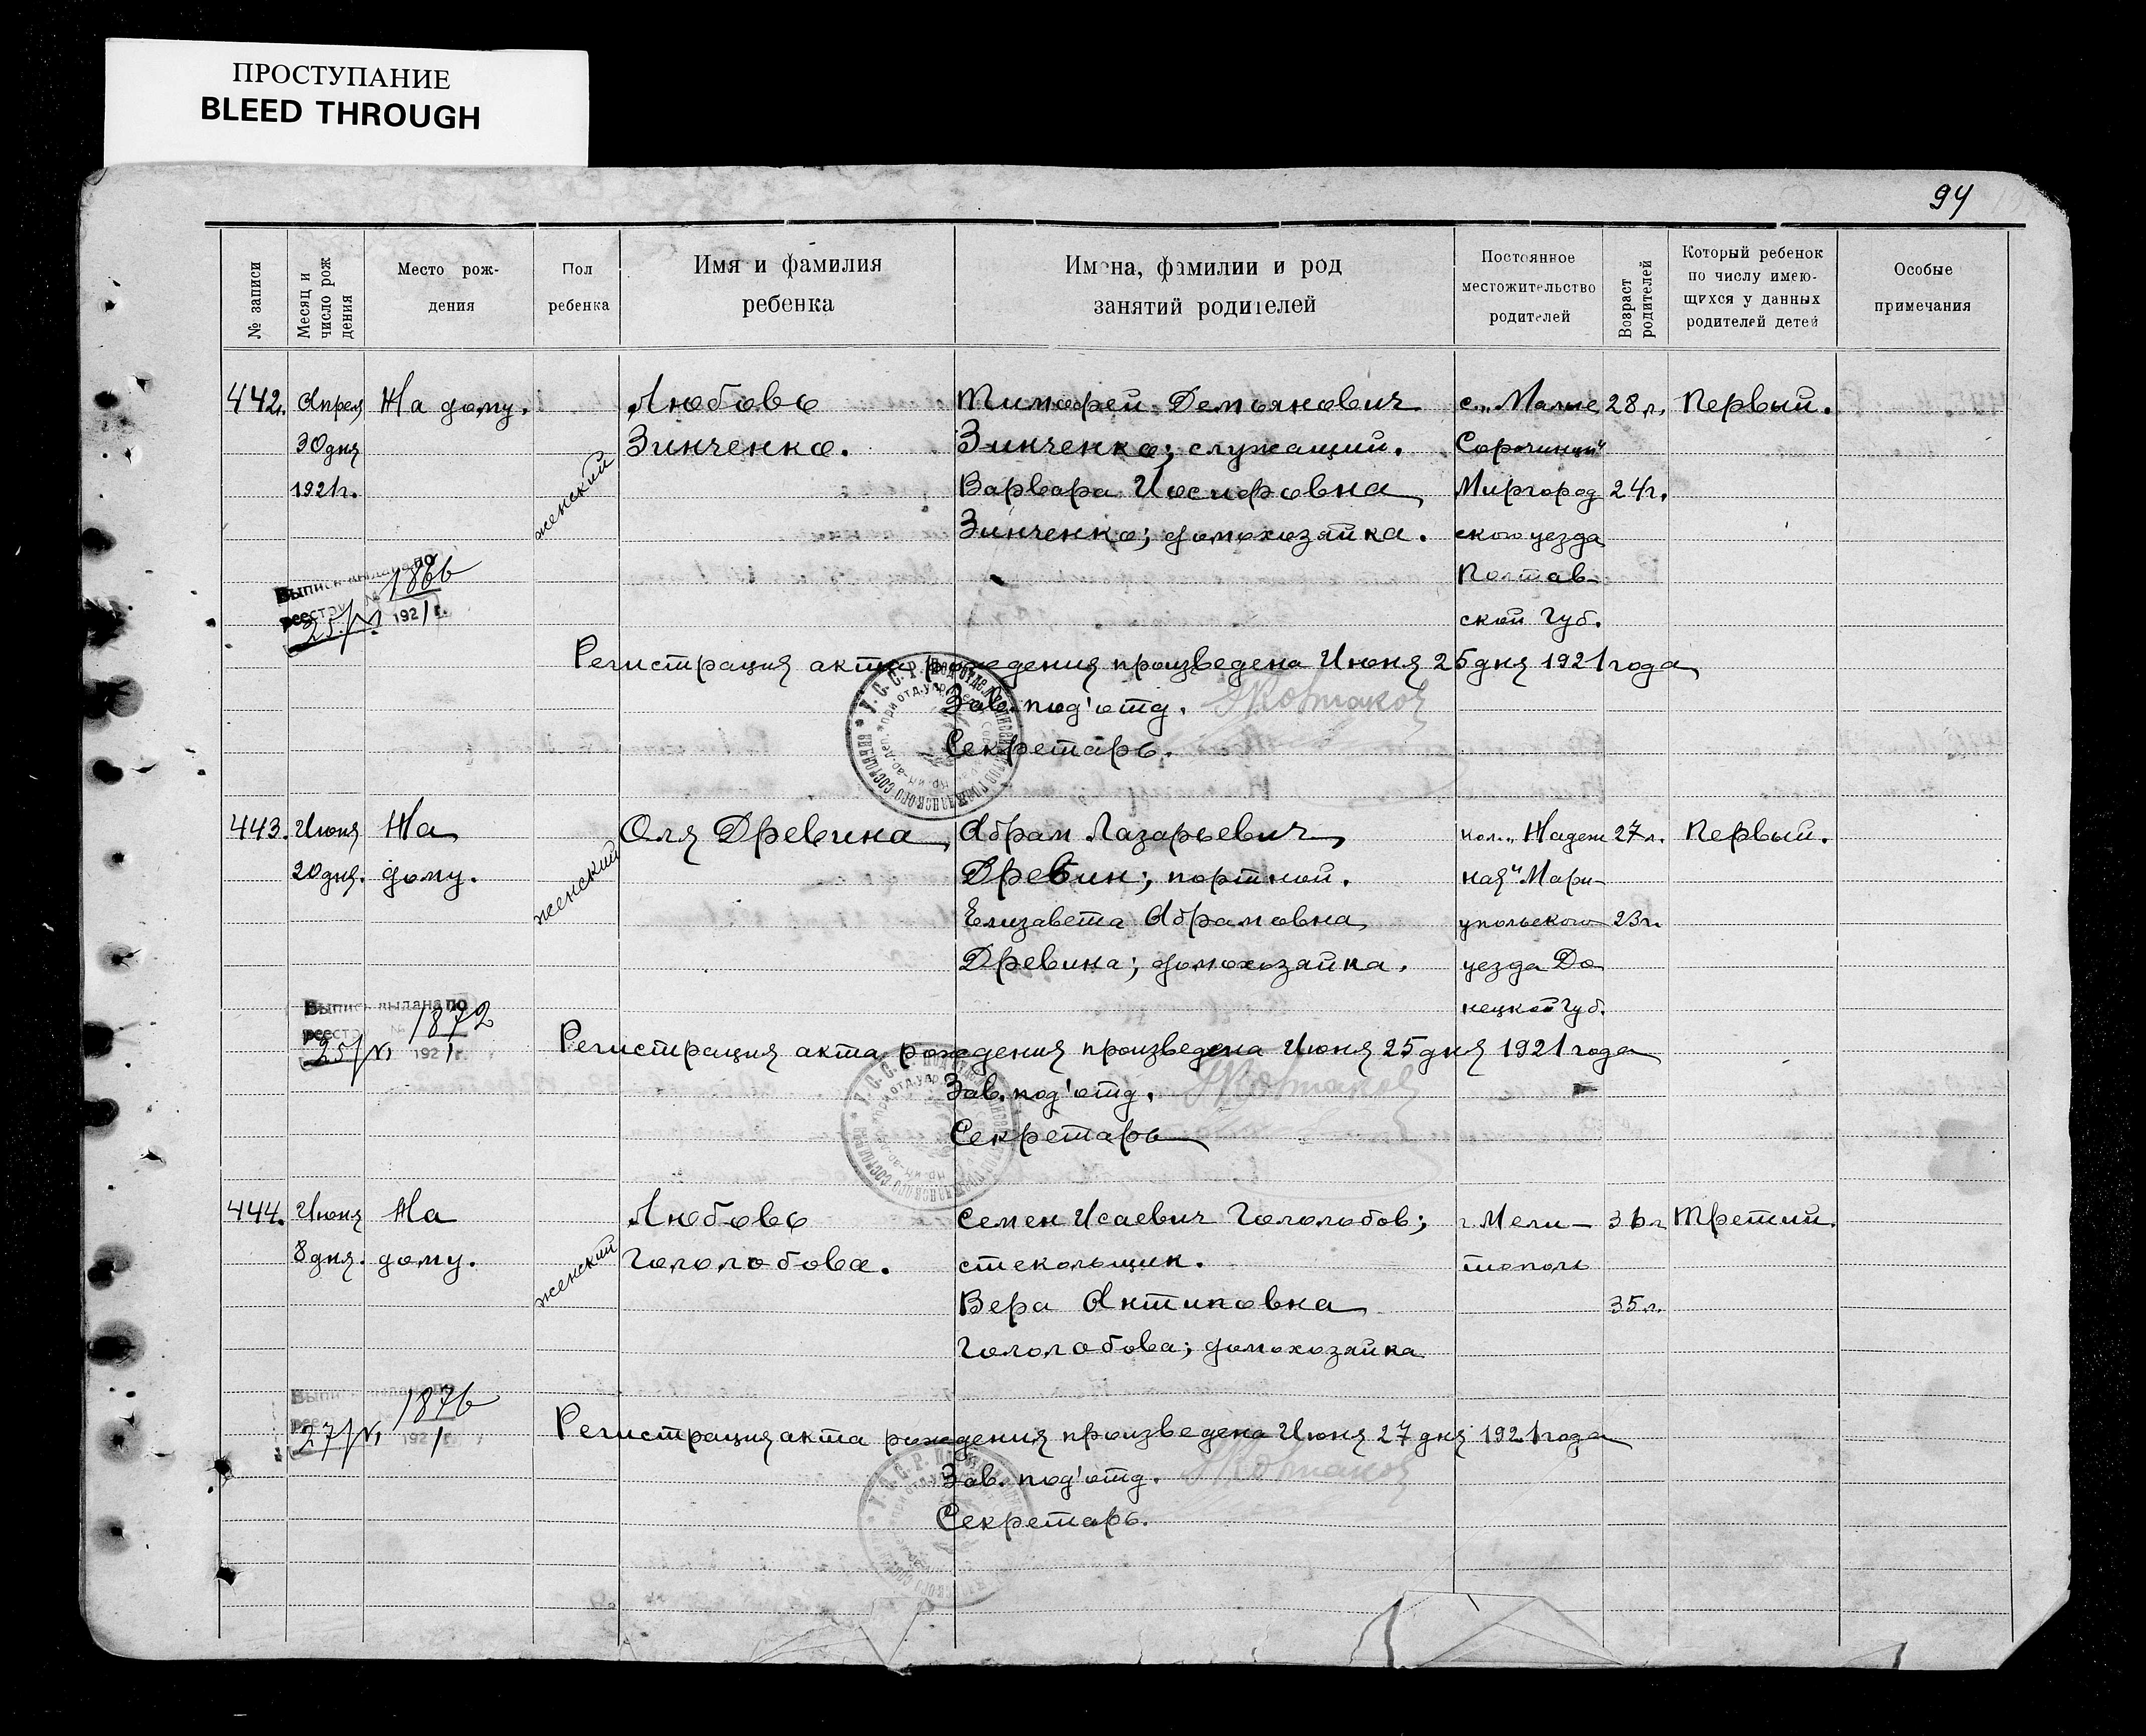 ПРОСТУПАНИЕ
BLEED THROUGH
94
№ записи
Месяц и число рождения
Место рождения
Пол ребенка
Имя и фамилия ребенка
Имена, фамилии и род занятий родителей
Постоянное местожительство родителей
Возраст родителей
Который ребенок по числу имеющихся у данных родителей детей
Особые примечания
442. Апреля На дому. Любовь Тимофей Демьянович с. „Малые 28 л. Первый.
30 дня Зинченко. Зинченко; служащий. Сорочинцы"
1921 г. женский Варвара Иосифовна Миргород 24 г.
Зинченко; домохозяйка. ского уезда
Выпись выдана по Полтав-
реестру № 1866 ской Губ.
25/VI 1921 г.
Регистрация акта рождения произведена Июня 25 дня 1921 года
Зав. под'отд.
Секретарь.
443. Июня На Оля Древина Абрам Лазарьевич кол. „Надеж 27 л. Первый.
20 дня. дому. женский Древин; портной. ная" Мари-
Елизавета Абрамовна упольского 23 г.
Древина; домохозяйка. уезда До
Выпись выдана по нецкой Губ.
реестру № 1872
25/VI 1921 г.
Регистрация акта рождения произведена Июня 25 дня 1921 года
Зав. под'отд.
Секретарь
444. Июня На Любовь Семен Исаевич Гололобов; г. Мели- 36 л Третий.
8 дня. дому. женский Гололобова. стекольщик. тополь
Вера Антиповна 35 л.
Гололобова; домохозяйка
Выпись выдана по
реестру 1876
27/VI 1921 г.
Регистрация акта рождения произведена Июня 27 дня 1921 года
Зав. под'отд.
Секретарь.